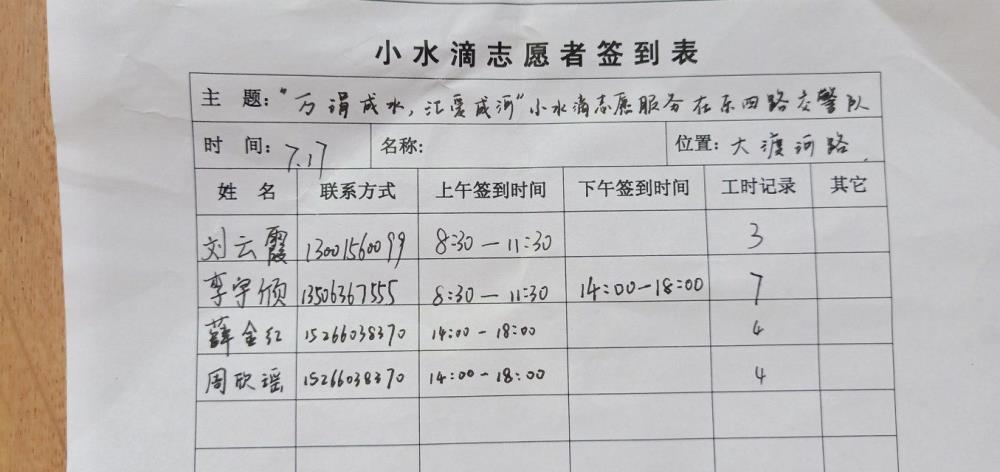 小水滴志愿者签到表
主 题:“万涓成水,汇爱成河”小水滴志愿服务在东四路交警队
时 间:7.17 名称: 位置:大渡河路
姓 名 联系方式 上午签到时间 下午签到时间 工时记录 其它
刘云霞 13001560099 8:30—11:30 3
李宇颀 13506367555 8:30—11:30 14:00—18:00 7
薛金红 15266038370 14:00-18:00 4
周欣瑶 15266038370 14:00-18:00 4